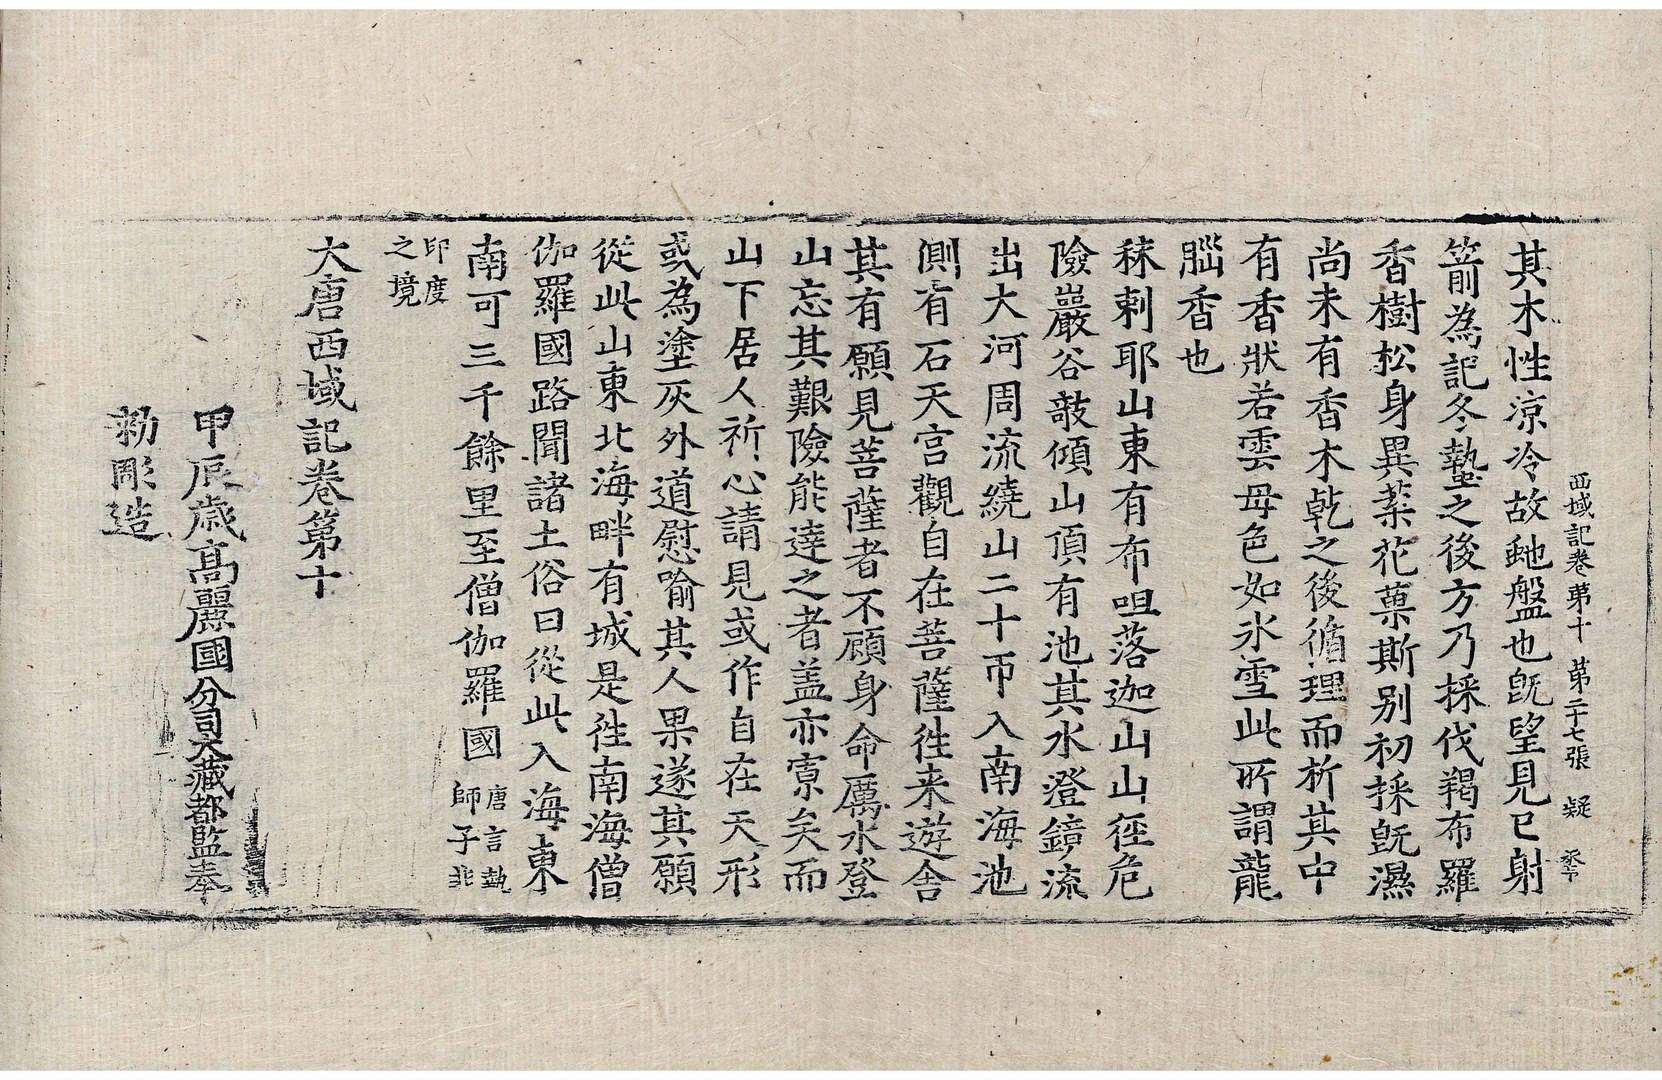 西域記卷第十 第二十七張 凝
其木性涼冷故虵盤也既望見已射
箭為記冬蟄之後方乃採伐羯布羅
香樹松身異葉花菓斯別初採既濕
尚未有香木乾之後循理而析其中
有香狀若雲母色如氷雪此所謂龍
腦香也
秣剌耶山東有布呾落迦山山徑危
險巖谷敧傾山頂有池其水澄鏡流
出大河周流繞山二十帀入南海池
側有石天宮觀自在菩薩徃來遊舍
其有願見菩薩者不顧身命厲水登
山忘其艱險能達之者蓋亦寡矣而
山下居人祈心請見或作自在天形
或為塗灰外道慰喻其人果遂其願
從此山東北海畔有城是徃南海僧
伽羅國路聞諸土俗曰從此入海東
南可三千餘里至僧伽羅國唐言執師子非
印度之境
大唐西域記卷第十
甲辰歲高麗國分司大藏都監奉
勑彫造